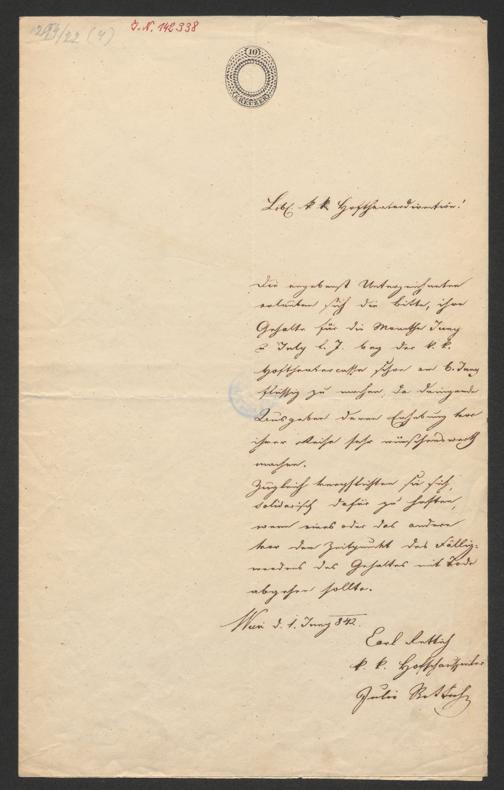 J.N. 142338
10
KREUZER
Löbl. k k Hoftheaterdirection!
Die ergebenst Unterzeichneten
erlauben sich die Bitte, ihre
Gehalte für die Monathe Juny
& July l. J. bey der k. k.
Hoftheatercasse schon am 6. Juny
flüssig zu machen, da dringende
Ausgaben deren Erhebung vor
ihrer Reise sehr wünschenswerth
machen.
Zugleich verpflichten sie sich,
solidarisch dafür zu haften,
wenn eines oder das andere
vor dem Zeitpunkt des Fällig-
werdens des Gehaltes mit Tode
abgehen sollte.
Wien d. 1. Juny 842.
Carl Rettich
k. k. Hofschauspieler
Julie Rettich